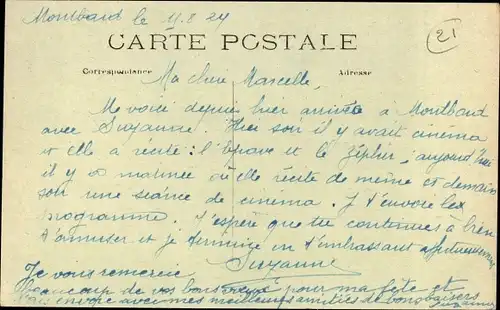 Montbard le 11.8.24
21
CARTE POSTALE
Correspondance
Adresse
Ma chère Marcelle,
Me voici depuis hier arrivée à Montbard
avec Suzanne. Hier soir il y avait cinéma
et elle a récité : l'Epave et le Zéphir ; aujourd'hui
il y a matinée où elle récite de même et demain
soir une séance de cinéma. Je t'envoie les
programme. J'espère que tu continues à bien
t'amuser et je termine en t'embrassant affectueusement
Suzanne
Je vous remercie
beaucoup de vos bons pour ma fête et
vous envoie avec mes meilleures amitiés de bons baisers
Suzanne